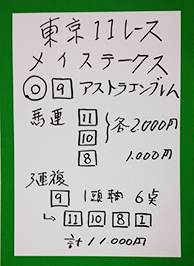 東京11レース
メイステークス
◎ 9 アストラエンブレム
馬連 11
10 } 各2.000円
8 1.000円
3連複
9 1頭軸 6点
↳ 11 10 8 1
計 11.000円